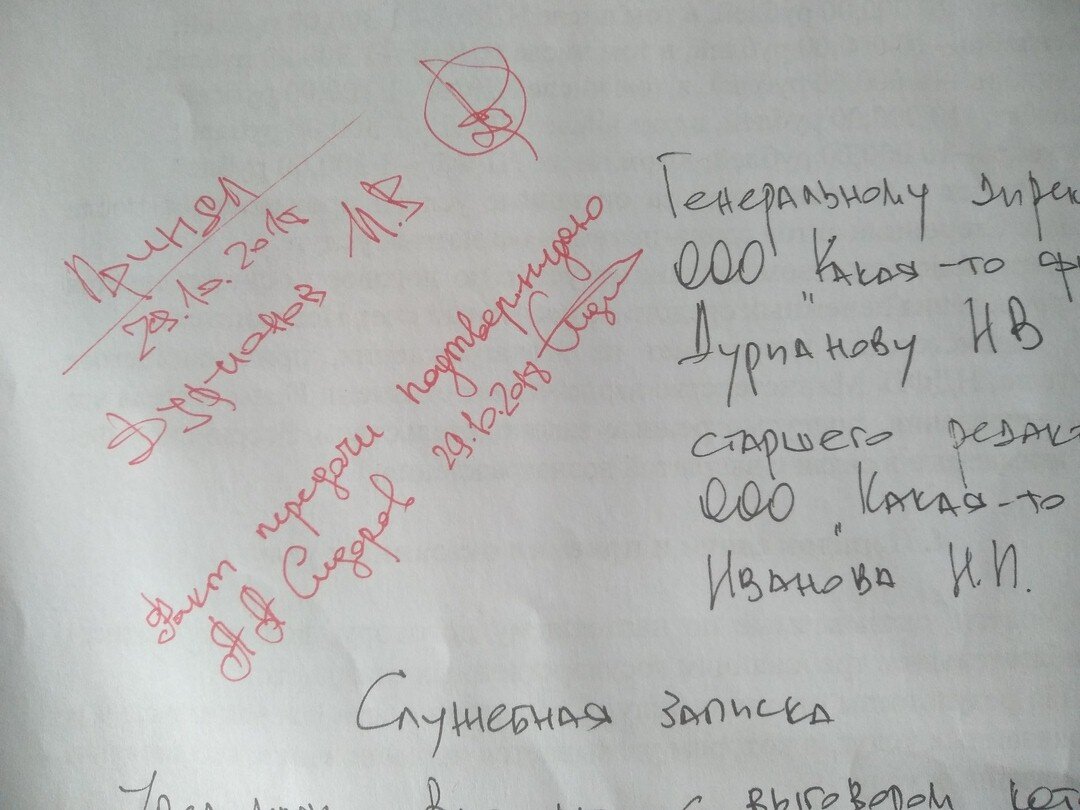 Принял
29.10.2018
Факт передачи подтверждаю
АА Сидоров 29.10.2018
Генеральному дирек
ООО "Какая-то ф
Дурианову НВ
старшего редак
ООО "Какая-то
Иванова Н.П.
Служебная записка
с выговором кот